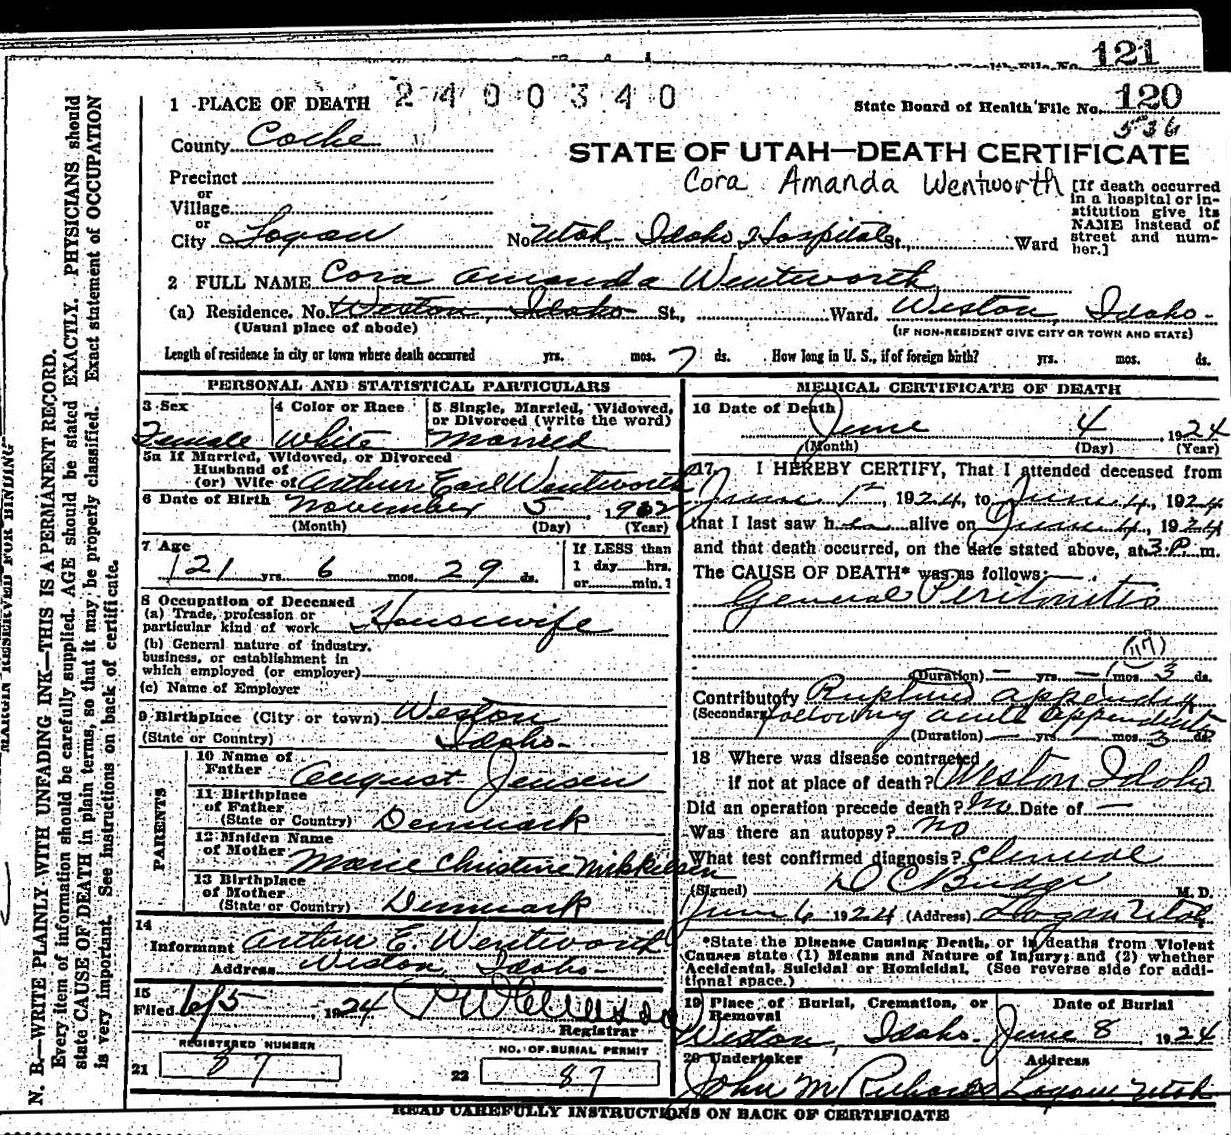 121
1 PLACE OF DEATH 2400340
State Board of Health File No. 120
536
County Cache
STATE OF UTAH—DEATH CERTIFICATE
Cora Amanda Wentworth
[If death occurred in a hospital or institution give its NAME instead of street and number.]
Precinct
or
Village
or
City Logan No. Utah-Idaho Hospital St., Ward
2 FULL NAME Cora Amanda Wentworth
(a) Residence. No. Weston, Idaho St., Ward. Weston, Idaho-
(Usual place of abode) (IF NON-RESIDENT GIVE CITY OR TOWN AND STATE)
Length of residence in city or town where death occurred yrs. mos. 7 ds. How long in U. S., if of foreign birth? yrs. mos. ds.
PERSONAL AND STATISTICAL PARTICULARS
3 Sex
Female
4 Color or Race
White
5 Single, Married, Widowed, or Divorced (write the word)
Married
5a If Married, Widowed, or Divorced
Husband of
(or) Wife of Arthur Earl Wentworth
6 Date of Birth November 5, 1902
(Month) (Day) (Year)
7 Age
21 yrs. 6 mos. 29 ds.
If LESS than
1 day hrs.
or min.
8 Occupation of Deceased
(a) Trade, profession or
particular kind of work Housewife
(b) General nature of industry,
business, or establishment in
which employed (or employer)
(c) Name of Employer
9 Birthplace (City or town) Weston
(State or Country) Idaho-
PARENTS
10 Name of
Father August Jensen
11 Birthplace
of Father
(State or Country) Denmark
12 Maiden Name
of Mother Marie Christine Mikkelsen
13 Birthplace
of Mother
(State or Country) Denmark
14
Informant Arthur E. Wentworth
Address Weston, Idaho-
15
Filed 6/5 1924
Registrar
REGISTERED NUMBER
21 87
NO. OF BURIAL PERMIT
22 87
MEDICAL CERTIFICATE OF DEATH
16 Date of Death
June 4, 1924
(Month) (Day) (Year)
17 I HEREBY CERTIFY, That I attended deceased from
June 1st 1924, to June 4, 1924
that I last saw her alive on June 4, 1924
and that death occurred, on the date stated above, at 3 P. m.
The CAUSE OF DEATH* was as follows:
General Peritonitis
117
(Duration) — yrs. — mos. 3 ds.
Contributory Ruptured appendix
(Secondary) following acute appendicitis
(Duration) — yrs. — mos. 3 ds.
18 Where was disease contracted
if not at place of death? Weston Idaho
Did an operation precede death? No Date of —
Was there an autopsy? No
What test confirmed diagnosis? Clinical
(Signed) D C Budge M. D.
June 6 1924 (Address) Logan Utah
*State the Disease Causing Death, or in deaths from Violent
Causes state (1) Means and Nature of Injury; and (2) whether
Accidental, Suicidal or Homicidal. (See reverse side for additional space.)
19 Place of Burial, Cremation, or
Removal
Weston, Idaho-
Date of Burial
June 8, 1924
20 Undertaker
John M. Richards
Address
Logan, Utah
READ CAREFULLY INSTRUCTIONS ON BACK OF CERTIFICATE
MARGIN RESERVED FOR BINDING
N. B.—WRITE PLAINLY WITH UNFADING INK—THIS IS A PERMANENT RECORD.
Every item of information should be carefully supplied. AGE should be stated EXACTLY. PHYSICIANS should
state CAUSE OF DEATH in plain terms, so that it may be properly classified. Exact statement of OCCUPATION
is very important. See instructions on back of certificate.